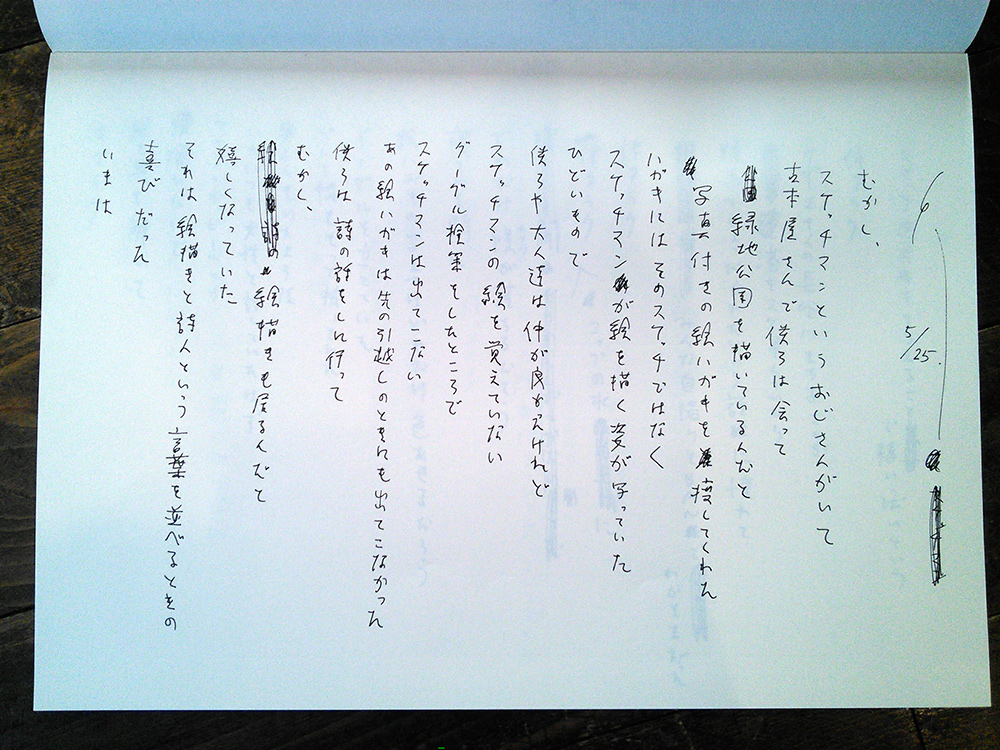 6
5/25.
むかし、
スケッチマンというおじさんがいて
古本屋さんで僕らは会って
緑地公園を描いているんだと
写真付きの絵ハガキを渡してくれた
ハガキにはそのスケッチではなく
スケッチマンが絵を描く姿が写っていた
ひどいもので
僕らや大人達は仲が良かったけれど
スケッチマンの絵を覚えていない
グーグル検索をしたところで
スケッチマンは出てこない
あの絵ハガキは先の引越しのときにも出てこなかった
僕らは詩の話をしに行って
むかし、
絵描きも居るんだと
嬉しくなっていた
それは絵描きと詩人という言葉を並べるときの
喜びだった
いまは